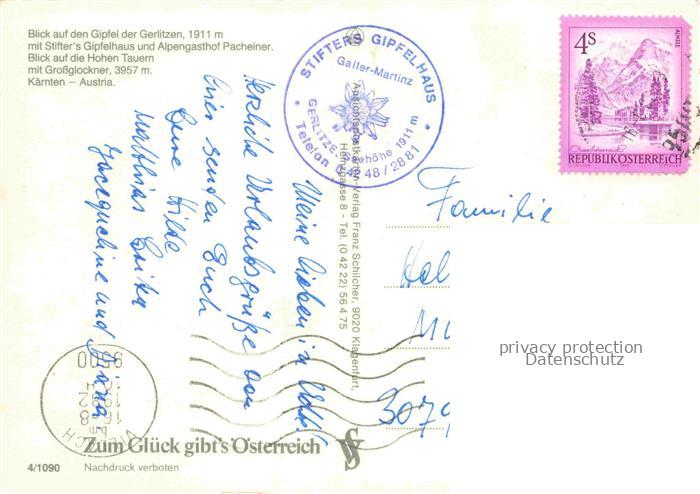 Blick auf den Gipfel der Gerlitzen, 1911 m
mit Stifter's Gipfelhaus und Alpengasthof Pacheiner.
Blick auf die Hohen Tauern
mit Großglockner, 3957 m.
Kärnten – Austria.
STIFTERS GIPFELHAUS
Galler-Martinz
GERLITZE Seehöhe 1911 m
Telefon 0 42 48 / 28 81
4S
ALMSEE
REPUBLIK ÖSTERREICH
Meine Lieben in
Herzliche Urlaubsgrüße von
hier senden Euch
Eure Hilde
Matthias Erika
Jacequeline und
Ansichtspostkarten-Verlag Franz Schilcher, 9020 Klagenfurt,
8 - Tel. (0 42 22) 56 4 75
Familie
Hel
307
privacy protection
Datenschutz
VILLACH
9500
Zum Glück gibt's Österreich
4/1090
Nachdruck verboten